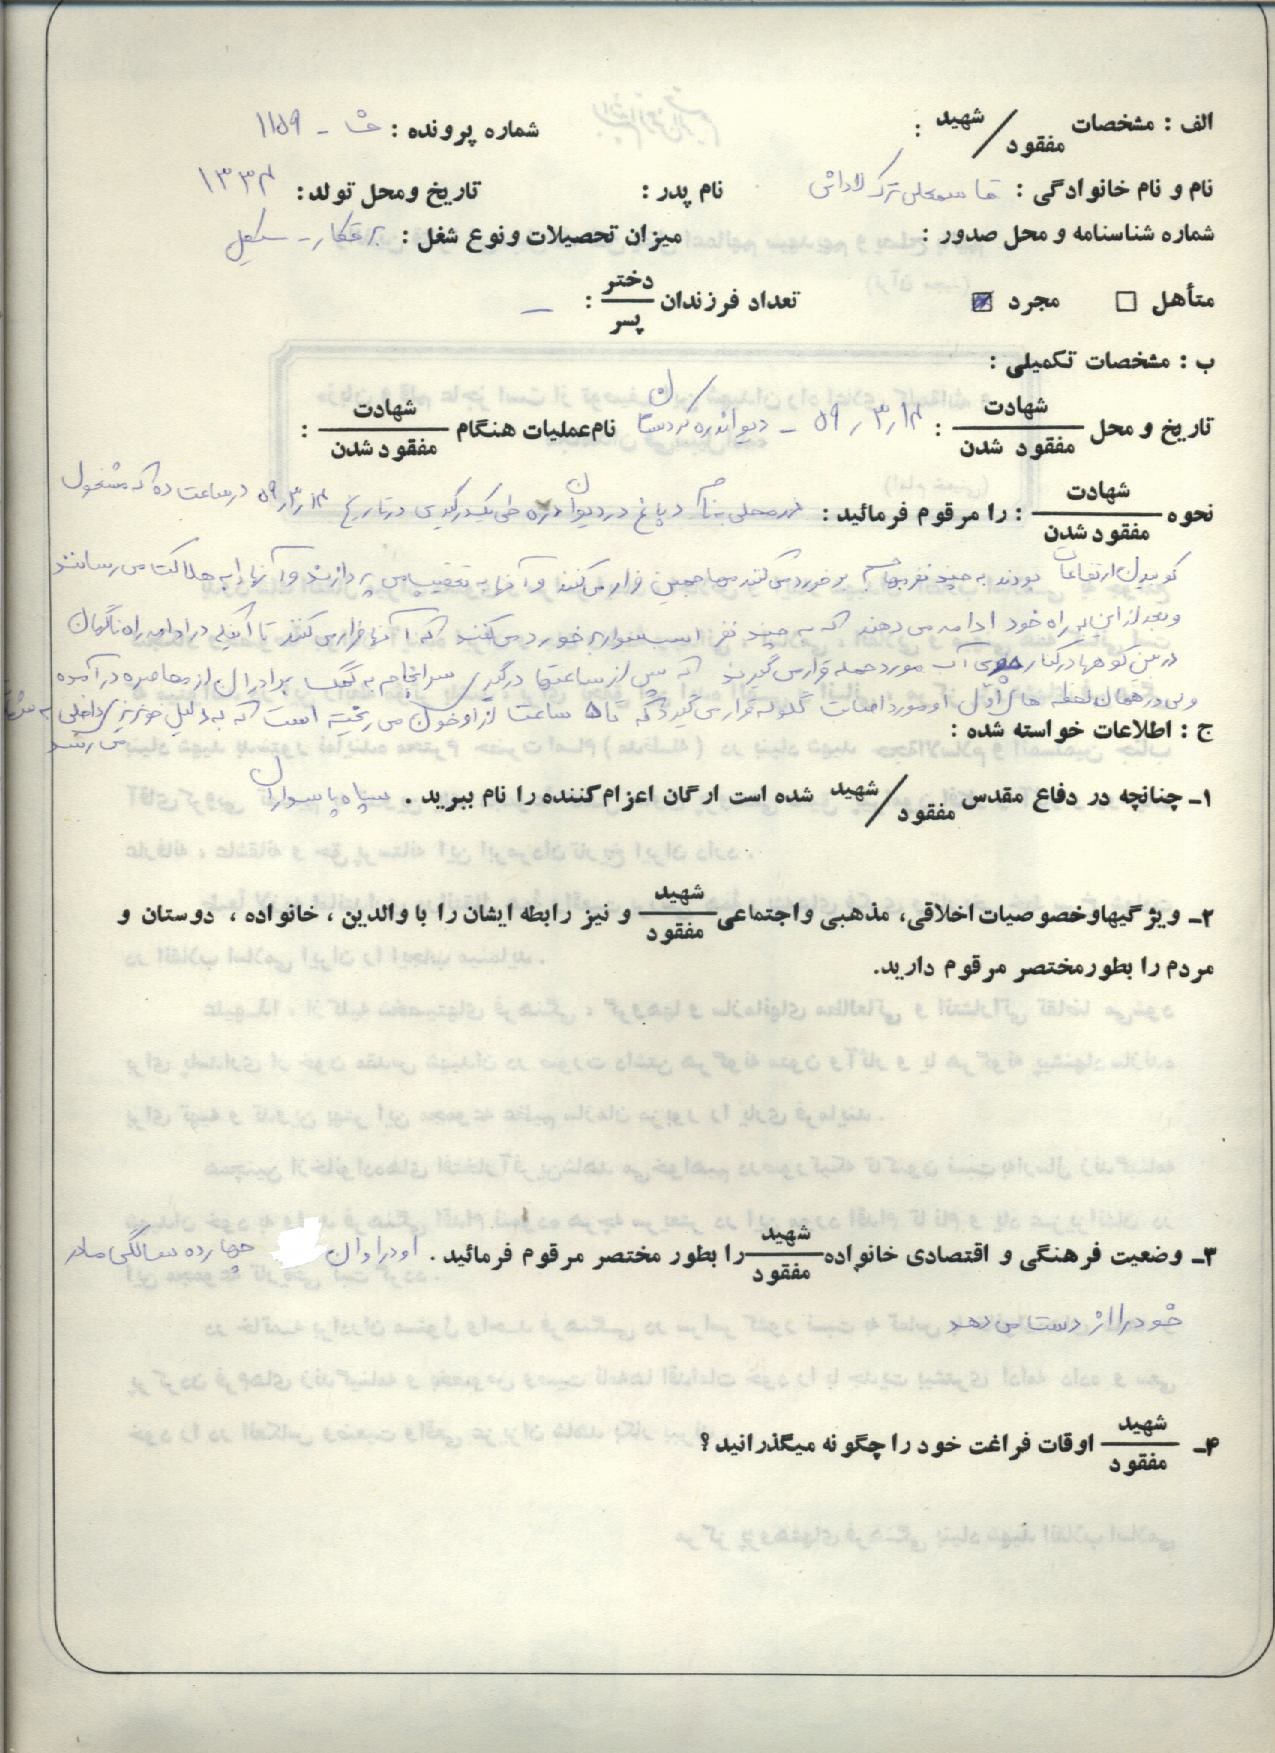 الف : مشخصات شهید / مفقود : شماره پرونده : خ‍ـا - ۱۱۵۹
نام و نام خانوادگی : قاسمعلی ترک لادانی نام پدر : تاریخ ومحل تولد : ۱۳۳۴
شماره شناسنامه و محل صدور : میزان تحصیلات ونوع شغل : برقکار - سیکل
متأهل □ مجرد ☑ تعداد فرزندان دختر / پسر : -
ب : مشخصات تکمیلی :
تاریخ و محل شهادت / مفقود شدن : ۵۹٫۳٫۱۴ - دیواندره کردستان نام عملیات هنگام شهادت / مفقود شدن :
نحوه شهادت / مفقود شدن : را مرقوم فرمائید : در محلی بنام دره باغ در دیواندره طی یک درگیری در تاریخ ۵۹٫۳٫۱۴ در ساعت ده که مشغول
کوبیدن ارتفاعات بودند به چند نفر مهاجم برخورد می کنند مهاجمین فرار می کنند و آنها به تعقیب می پردازند و آنها را به هلاکت می رسانند
و بعد از این به راه خود ادامه می دهند که به چند نفر اسب سوار برخورد می کنند که آنها فرار می کنند تا اینکه در ادامه راه ناگهان
در بین کوهها در کنار جوی آب مورد حمله قرار می گیرند که پس از ساعتها درگیری سرانجام به کمک برادران از محاصره در آمده
وی در همان لحظه های اول او مورد اصابت گلوله قرار می گیرد که تا ۵ ساعت از او خون می ریخته است که به دلیل خونریزی داخلی به شهادت
می رسد
ج : اطلاعات خواسته شده :
۱- چنانچه در دفاع مقدس شهید / مفقود شده است ارگان اعزام کننده را نام ببرید . سپاه پاسداران
۲- ویژگیها وخصوصیات اخلاقی، مذهبی واجتماعی شهید / مفقود و نیز رابطه ایشان را با والدین ، خانواده ، دوستان و
مردم را بطورمختصر مرقوم دارید.
۳- وضعیت فرهنگی و اقتصادی خانواده شهید / مفقود را بطور مختصر مرقوم فرمائید . او در اوان چهارده سالگی مادر
خود را از دست می دهد
۴- شهید / مفقود اوقات فراغت خود را چگونه میگذرانید ؟